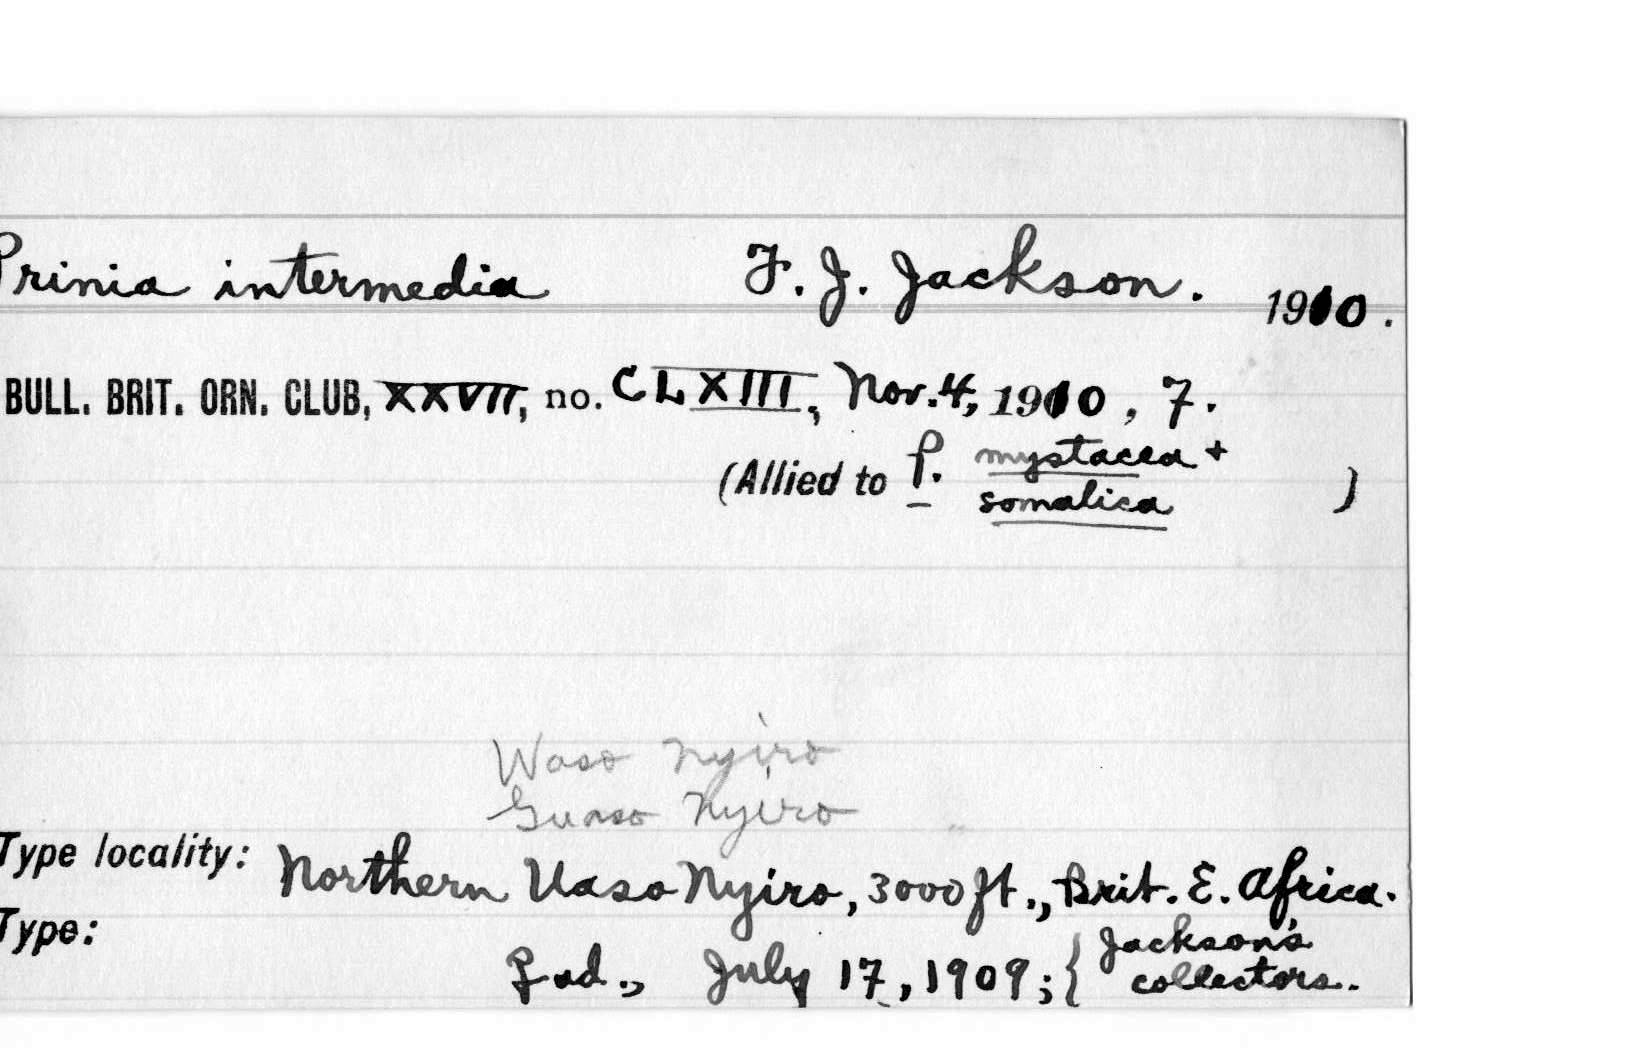 Prinia intermedia F. J. Jackson. 1910.
BULL. BRIT. ORN. CLUB, XXVII, no. CLXIII, Nov. 4, 1910, 7.
(Allied to P. mystacea +
somalica )
Waso Nyiro
Guaso Nyiro
Type locality: Northern Uaso Nyiro, 3000 ft., Brit. E. Africa.
Type:
ad., July 17, 1909; { Jackson's
collectors.